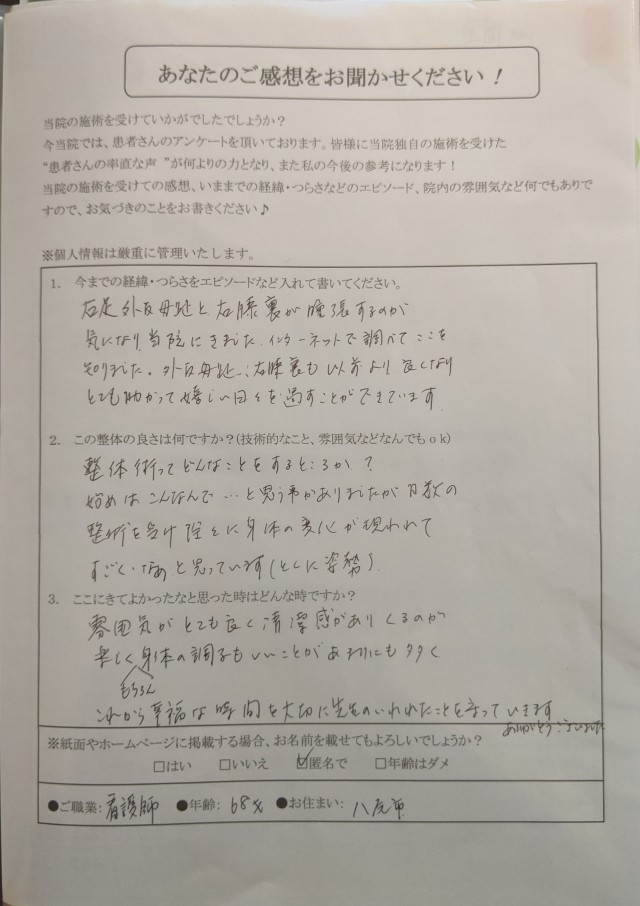 あなたのご感想をお聞かせください！
当院の施術を受けていかがでしたでしょうか？
今当院では、患者さんのアンケートを頂いております。皆様に当院独自の施術を受けた
“患者さんの率直な声 ”が何よりの力となり、また私の今後の参考になります！
当院の施術を受けての感想、いままでの経緯・つらさなどのエピソード、院内の雰囲気など何でもありで
すので、お気づきのことをお書きください♪
※個人情報は厳重に管理いたします。
1. 今までの経緯・つらさをエピソードなど入れて書いてください。
右足外反母趾と右膝裏が腫張するのが
気になり、当院にきました。インターネットで調べてここを
知りました。外反母趾、右膝裏も以前より良くなり
とても助かって嬉しい日々を過すことができています。
2. この整体の良さは何ですか？(技術的なこと、雰囲気などなんでもｏｋ)
整体術ってどんなことをするところか？
始めはこんなんで…と思う事がありましたが月数の
整術を受け除々に身体の変化が現われて
すごいなあと思っています(とくに姿勢)。
3. ここにきてよかったなと思った時はどんな時ですか？
雰囲気がとても良く清潔感がありくるのが
楽しく身体の調子もいいことがあまりにも多く
もちろん
これから幸福な時間を大切に先生のいわれたことを守っていきます
ありがとうございました
※紙面やホームページに掲載する場合、お名前を載せてもよろしいでしょうか？
□はい □いいえ ☑匿名で □年齢はダメ
●ご職業: 看護師 ●年齢: 68才 ●お住まい: 八尾市